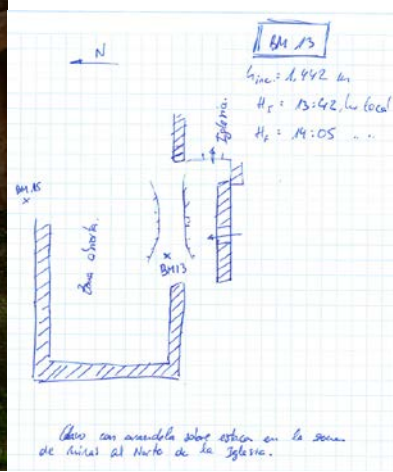 BM 13
N
hinc = 1,442 m
H = 13:42, hora local
H = 14:05 " "
Iglesia.
BM 15
Zona abierta.
BM13
Clavo con arandela sobre estaca en la zona
de ruinas al Norte de la Iglesia.